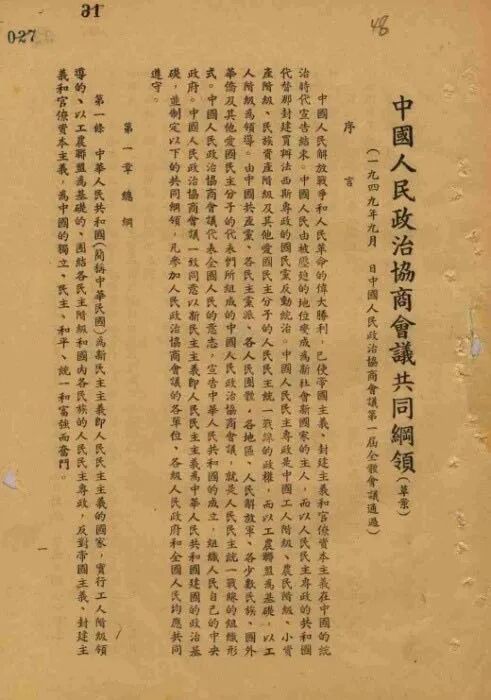 48
中國人民政治協商會議共同綱領(草案)
(一九四九年九月 日中國人民政治協商會議第一屆全體會議通過)
序言
中國人民解放戰爭和人民革命的偉大勝利,已使帝國主義、封建主義和官僚資本主義在中國的統
治時代宣告結束。中國人民由被壓迫的地位變成為新社會新國家的主人,而以人民民主專政的共和國
代替那封建買辦法西斯專政的國民黨反動統治。中國人民民主專政是中國工人階級、農民階級、小資
產階級、民族資產階級及其他愛國民主分子的人民民主統一戰線的政權,而以工農聯盟為基礎,以工
人階級為領導。由中國共產黨、各民主黨派、各人民團體,各地區、人民解放軍、各少數民族、國外
華僑及其他愛國民主分子的代表們所組成的中國人民政治協商會議,就是人民民主統一戰線的組織形
式。中國人民政治協商會議代表全國人民的意志,宣告中華人民共和國的成立,組織人民自己的中央
政府。中國人民政治協商會議一致同意以新民主主義即人民民主主義為中華人民共和國建國的政治基
礎,並制定以下的共同綱領,凡參加人民政治協商會議的各單位、各級人民政府和全國人民均應共同
遵守。
第一章 總綱
第一條 中華人民共和國(簡稱中華民國)為新民主主義即人民民主主義的國家,實行工人階級領
導的、以工農聯盟為基礎的、團結各民主階級和國內各民族的人民民主專政,反對帝國主義、封建主
義和官僚資本主義,為中國的獨立、民主、和平、統一和富強而奮鬥。
31
027